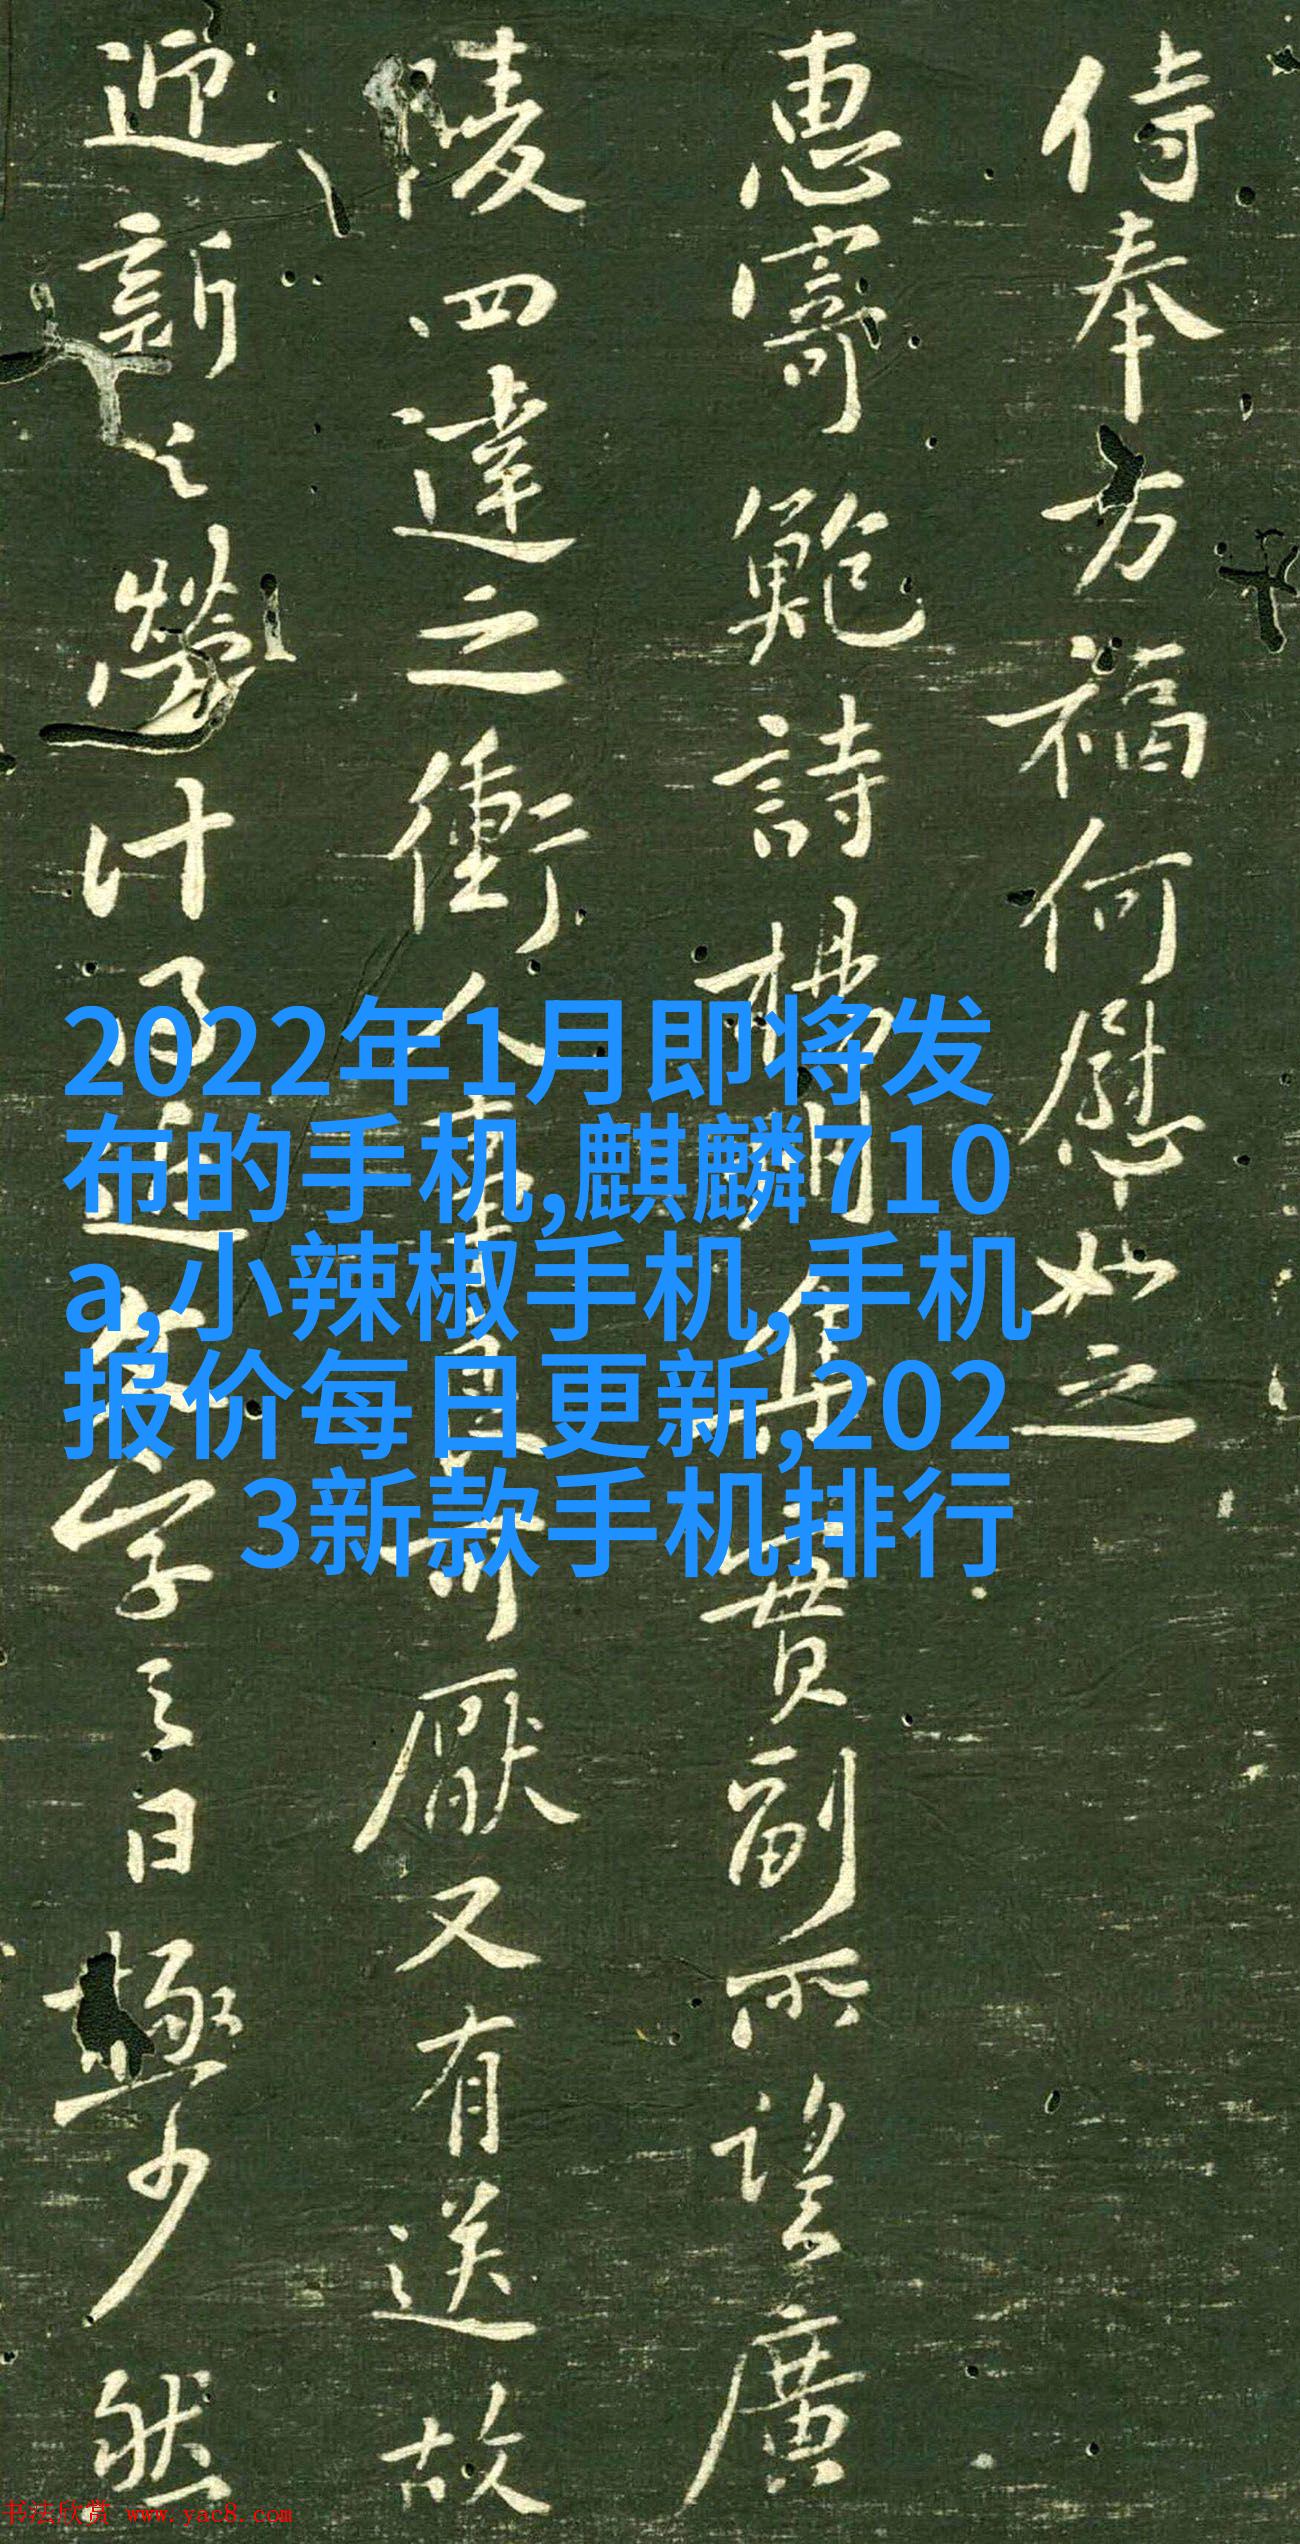 侍奉万福何慰如之
惠寄鮑詩集副所望廣
陵四達之衝人事可厭又有送故
迎新之勞計字之日極少然
2022年1月即将发
布的手机,麒麟710
a,小辣椒手机,手机
报价每日更新,202
3新款手机排行
书法欣赏 www.yac8.com